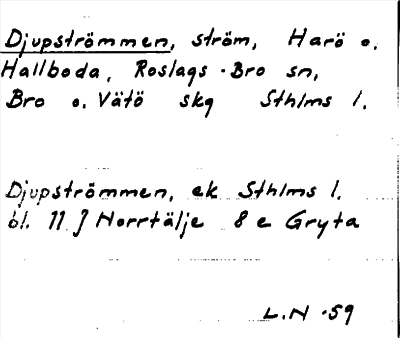 Djupströmmen, ström, Harö o.
Hallboda, Roslags-Bro sn,
Bro o. Vätö skg Sthlms l.
Djupströmmen, ek Sthlms l.
bl. 11 J Norrtälje 8 e Gryta
L.N -59